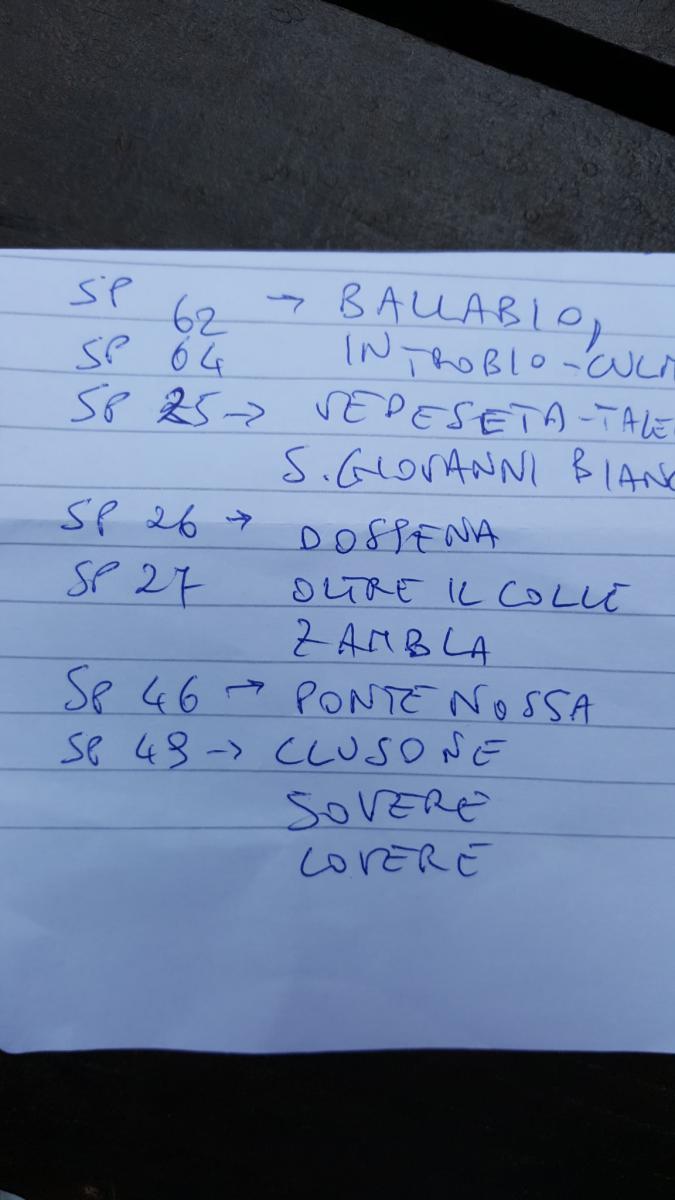 SP 62 → BALLABIO,
SP 64 INTROBIO-CULM
SP 25 → VEDESETA-TALE
S. GIOVANNI BIANC
SP 26 → DOSSENA
SP 27 OLTRE IL COLLE
ZAMBLA
SP 46 → PONTE NOSSA
SP 49 → CLUSONE
SOVERE
LOVERE